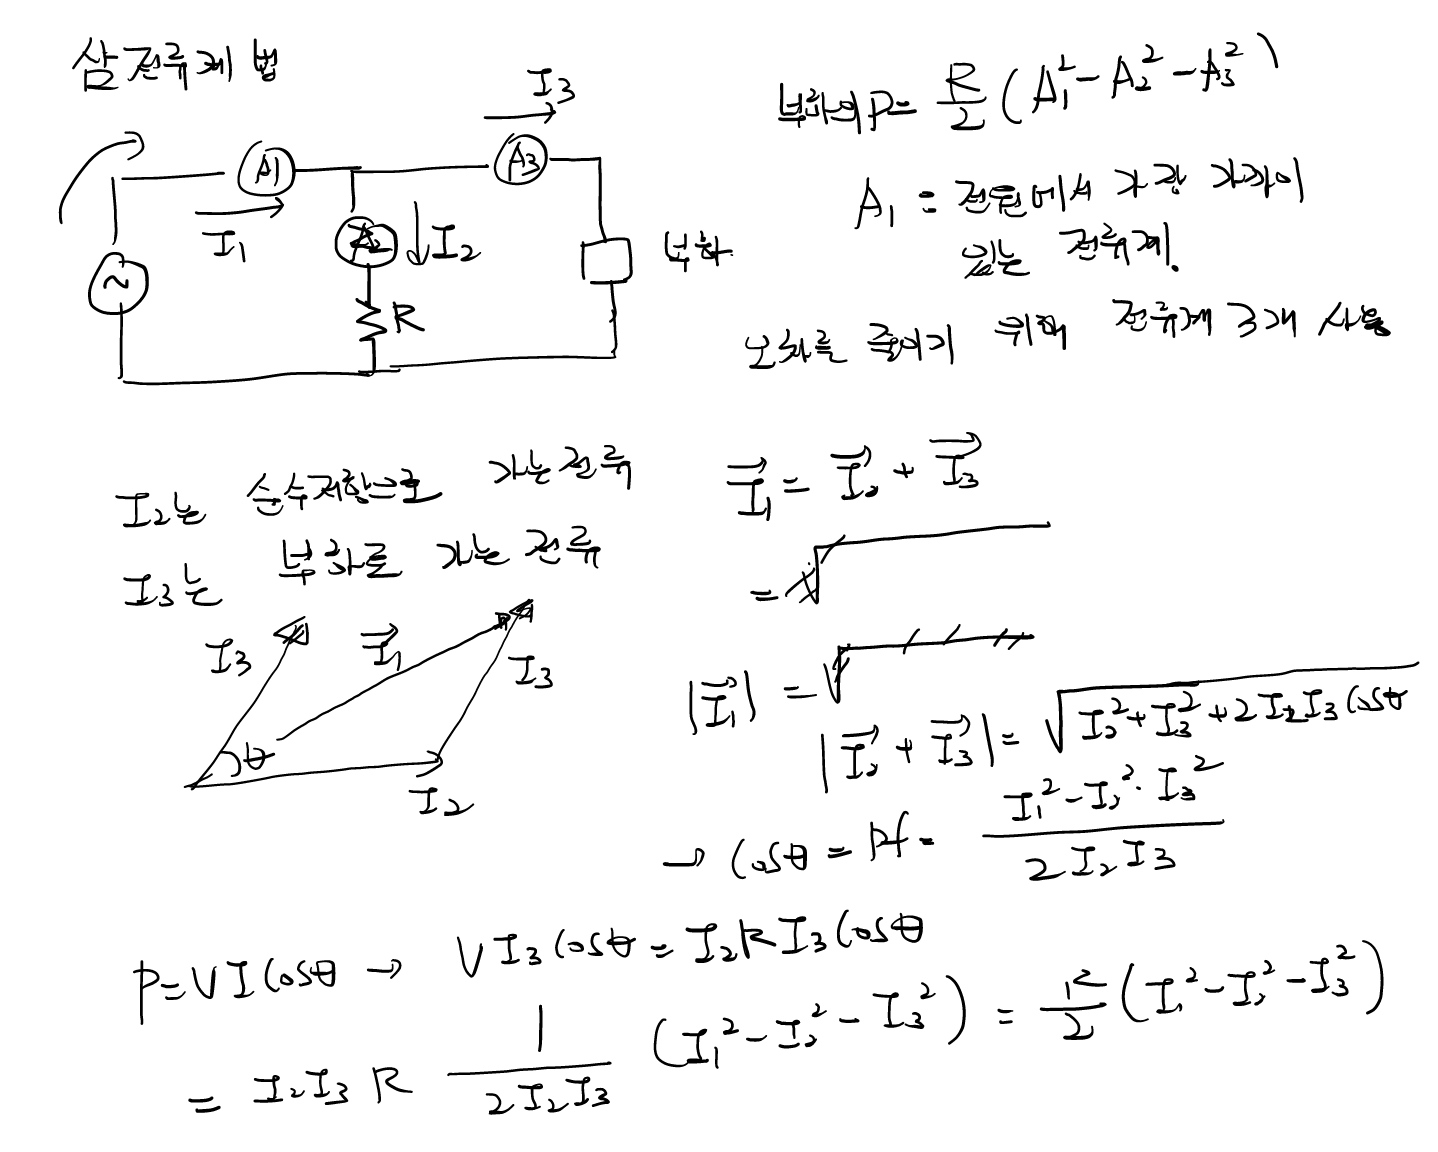 삼전류계법
I3
A1
A3
I1
A2
I2
R
부하
~
부하의 P = R/2 (A1² - A2² - A3²)
A1 : 전원에서 가장 가까이
있는 전류계.
오차를 줄이기 위해 전류계 3개 사용
I2는 순수저항으로 가는 전류
I3는 부하로 가는 전류
I3
I1
I3
θ
I2
I1 = I2 + I3
= √
|I1| = √
|I2 + I3| = √(I2² + I3² + 2I2I3 cosθ)
→ cosθ = Pf = (I1² - I2² · I3²) / (2I2I3)
P = VI cosθ → VI3 cosθ = I2RI3 cosθ
= I2I3 R 1/(2I2I3) (I1² - I2² - I3²) = R/2 (I1² - I2² - I3²)